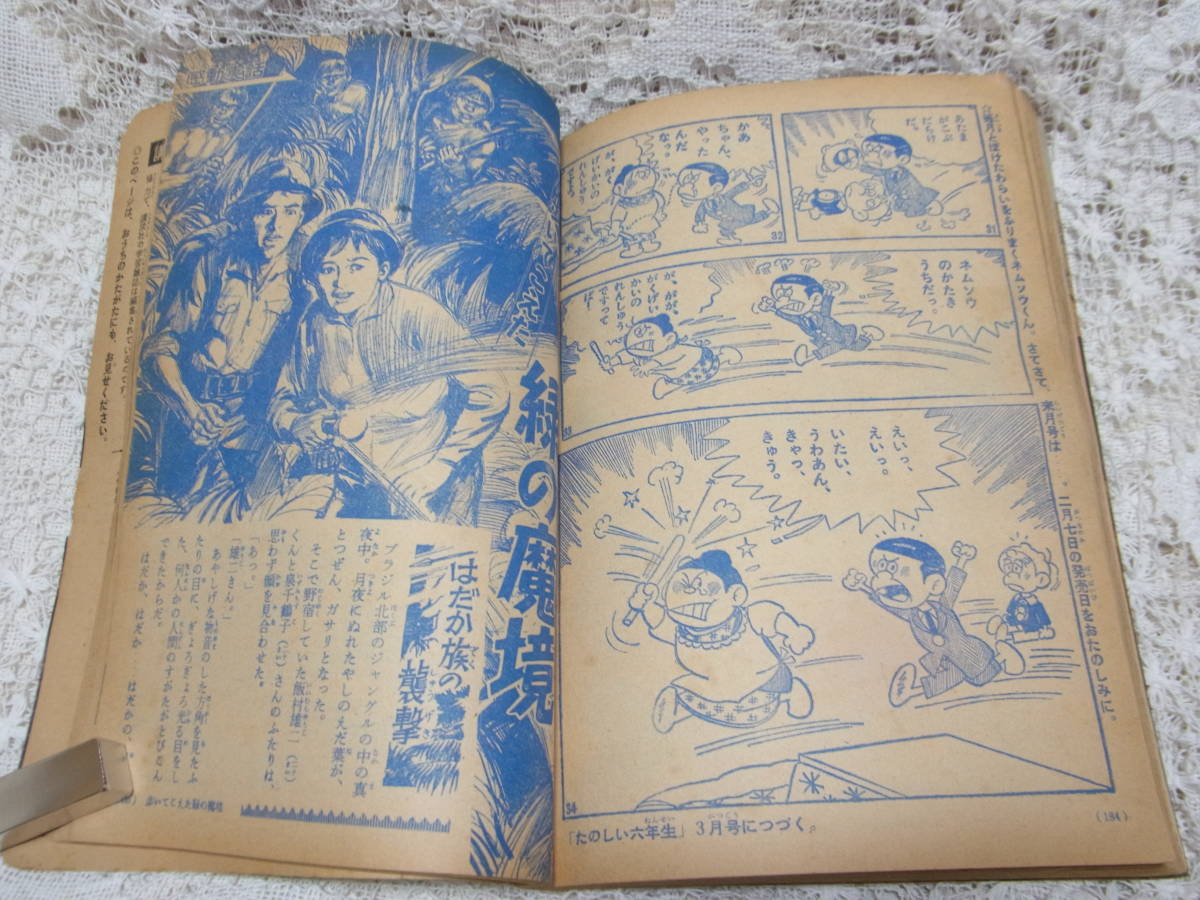 あたま
がこぶ
だらけ
だ。
31
かあ
ちゃん、
やった
んだ
なっ。
32
ネムソウ
のかたき
うちだっ。
が、がが、
がくげい
かいの
れんしゅう
ですって
ば!
33
えいっ、
えいっ。
いたい、
うわあん、
きゃっ、
きゅう。
34
ネムソウくん。さてさて、
来月号は
二月七日の発売日をおたのしみに。
「たのしい六年生」3月号につづく。
(184)
緑の魔境
はだか族の
襲撃
ブラジル北部のジャングルの中の真
夜中。月夜にぬれたやしのえだ葉が、
とつぜん、ガサリとなった。
そこで野宿していた飯村雄二
くんと泉千鶴子さんのふたりは、
思わず顔を見合わせた。
「あっ。」
「雄二さん。」
あやしげな物音のした方角を見たふ
たりの目に、ぎょろぎょろ光る目をし
た、何人かの人間のすがたがとびこん
できたからだ。
はだか、はだか……はだかの、
このページは、おうちのかたがたにも、お見せください。